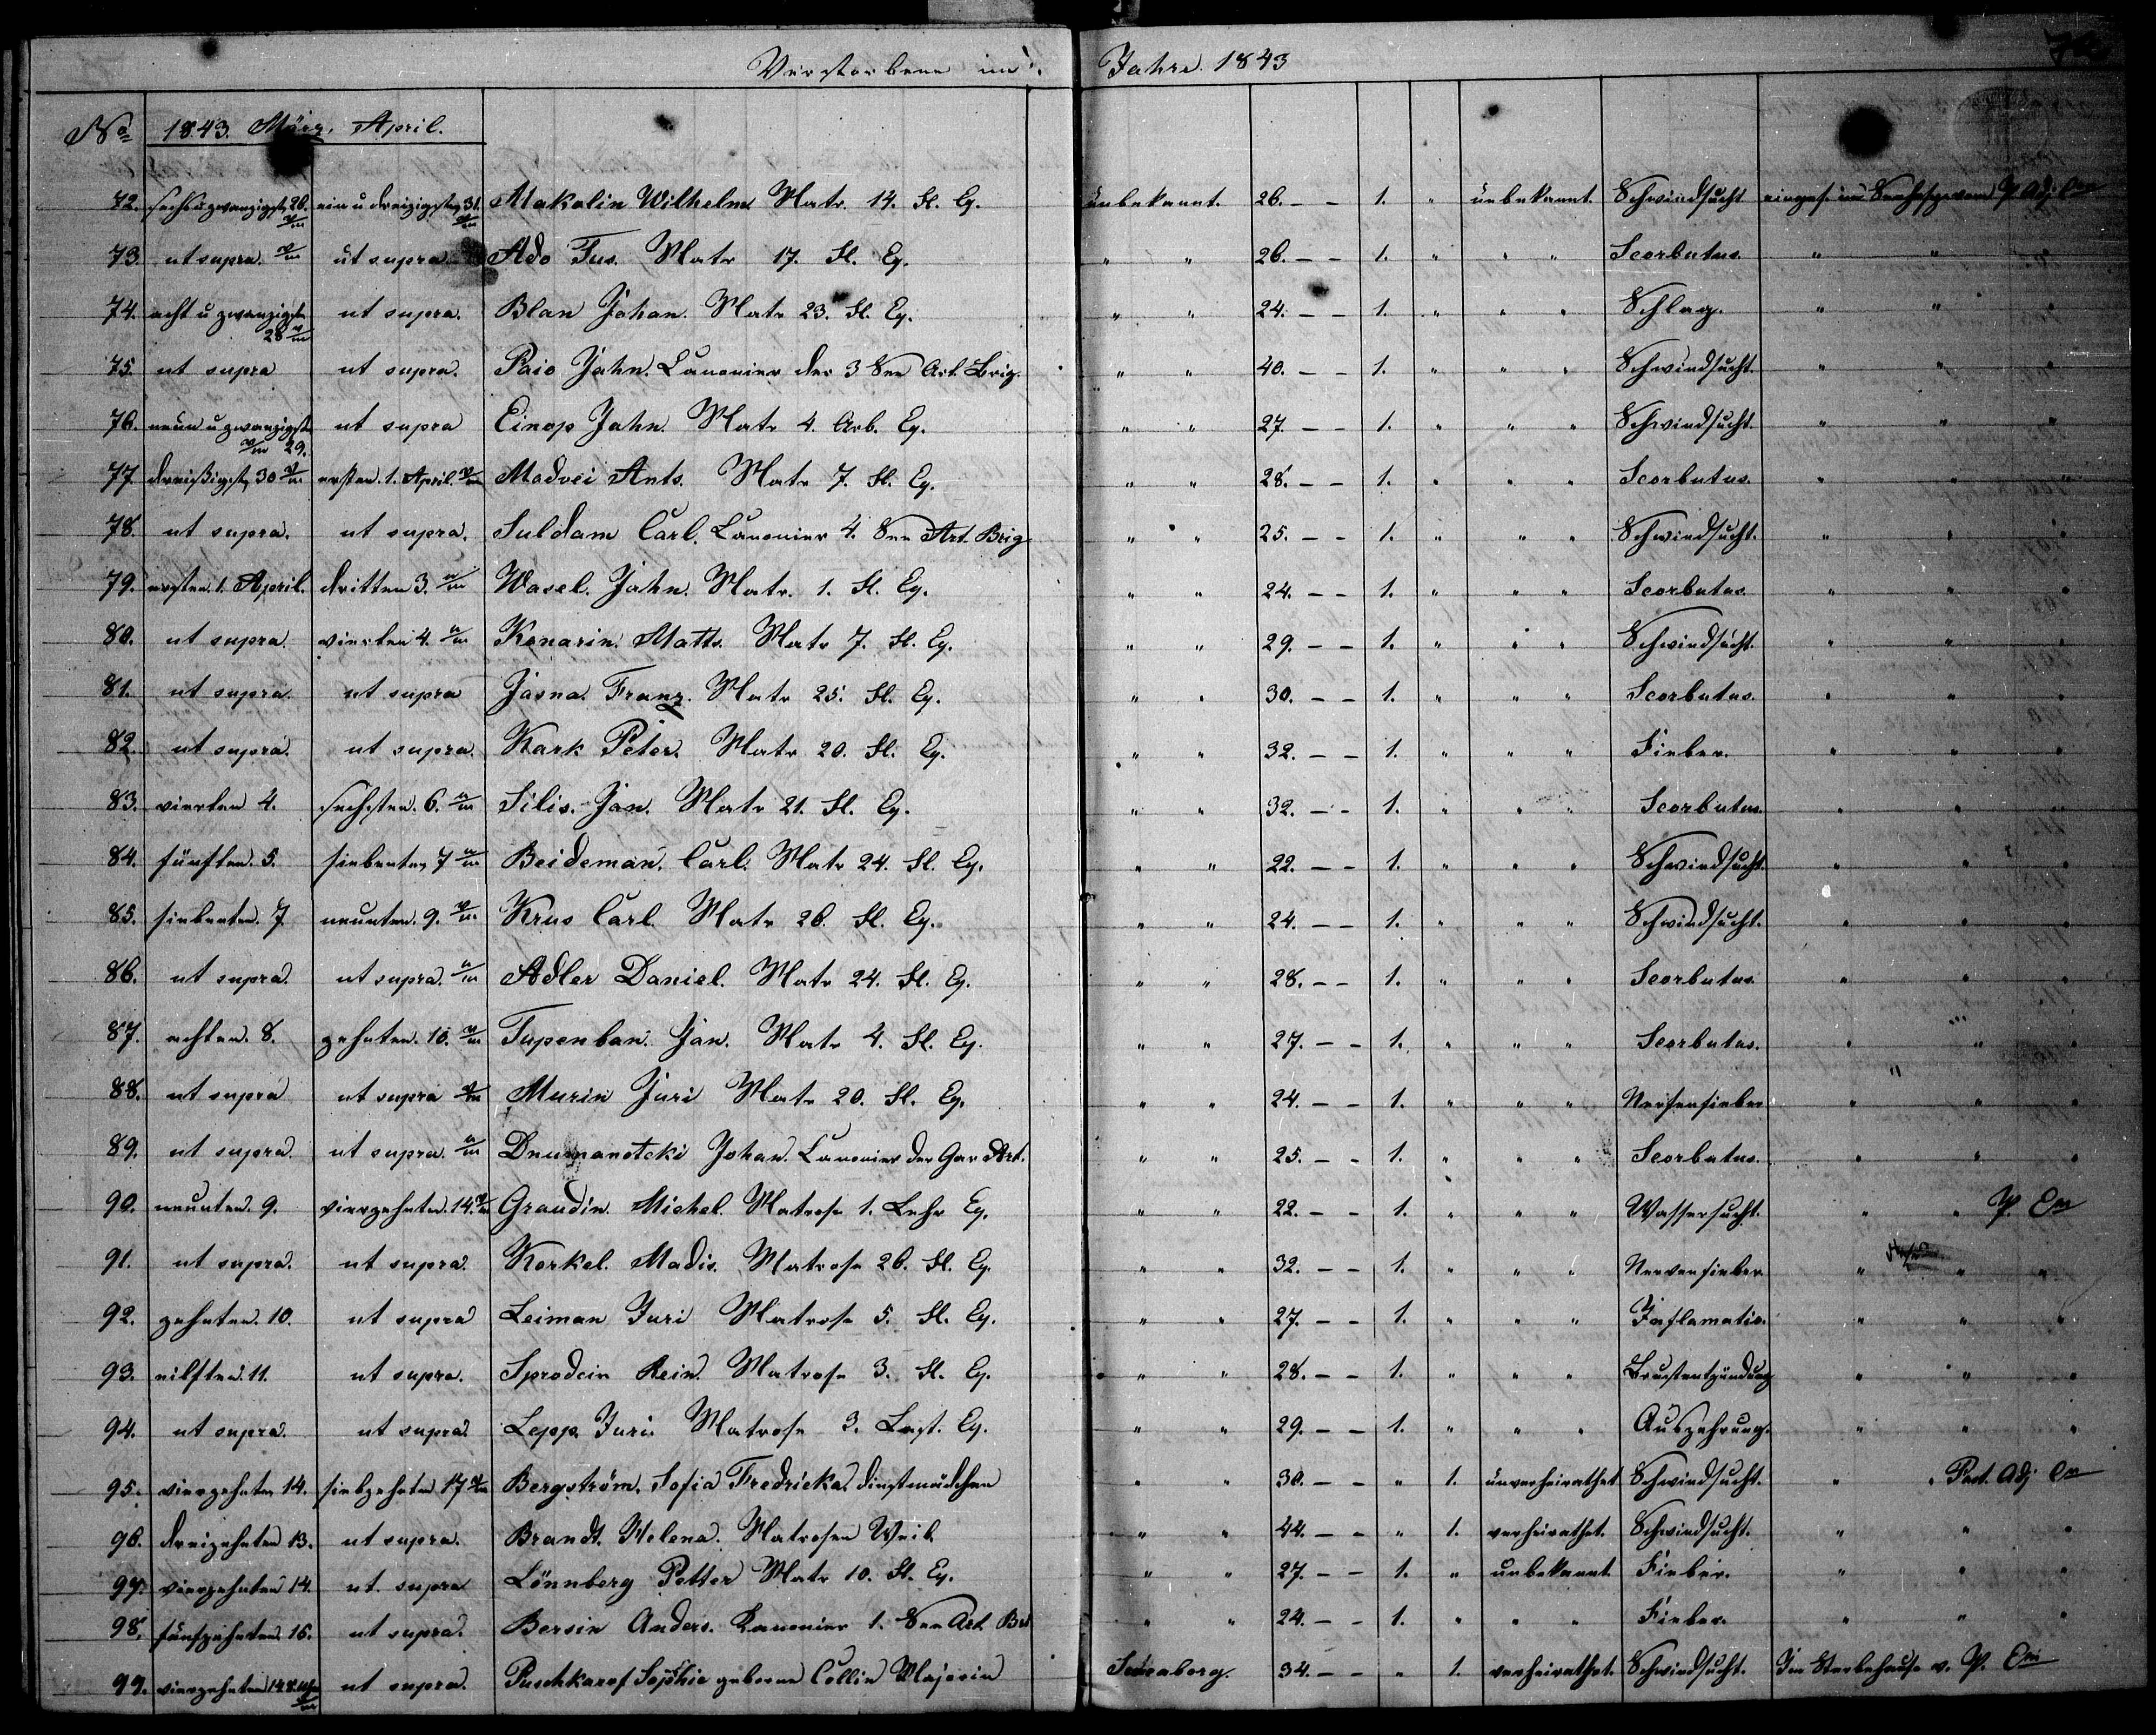 Verstorbene im Jahre 1843
No 1843. März. April.
72. sechsuzwanzigst 26. ein u dreizigsten 31. Makalin Wilhelm Matr. 14. Fl. Eq. unbekannt. 26. - - 1. " unbekannt. Schwindsucht
73. ut supra. ut supra. Ado Tus. Matr 17. Fl. Eq. " " 26. - - 1. " " " Scorbutus. " "
74. acht u zwanzigste 28 ut supra. Blan Johan. Matr 23. Fl. Eq. " " 24. - - 1. " " " Schlag. " " "
75. ut supra ut supra. Paio Jahn. Canonier der 3 See Art. Brig. " " 40. - - 1. " " " Schwindsucht. " " "
76. neun u zwanzigste 29. ut supra Einop Jahn. Matr 4. Arb. Eq. " " 27. - - 1. " " " Schwindsucht. " " "
77. dreißigste 30 ersten. 1. April. Madvei Ants. Matr 7. Fl. Eq. " " 28. - - 1. " " " Scorbutus. " " "
78. ut supra. ut supra. Suldam Carl. Canonier 4. See Art. Brig " " 25. - - 1. " " " Schwindsucht. " " "
79. ersten. 1. April. dritten 3. Wasel. Jahn. Matr. 1. Fl. Eq. " " 24. - - 1. " " " Scorbutus " " "
80. ut supra. vierten 4. Konarin. Matts. Matr 7. Fl. Eq. " " 29. - - 1. " " " Schwindsucht. " " "
81. ut supra. ut supra Jasna. Franz. Matr 25. Fl. Eq. " " 30. - - 1. " " " Scorbutus. " " "
82. ut supra. ut supra. Kark Peter. Matr 20. Fl. Eq. " " 32. - - 1. " " " Fieber. " " "
83. vierten 4. sechsten. 6. Silis. Jan. Matr 21. Fl. Eq. " " 32. - - 1. " " " Scorbutus. " " "
84. fünften. 5. siebenten 7 Beideman. Carl. Matr 24. Fl. Eq. " " 22. - - 1. " " " Schwindsucht. " " "
85. siebenten. 7. neunten. 9. Krus Carl. Matr 26. Fl. Eq. " " 24. - - 1. " " " Schwindsucht. " " "
86. ut supra. ut supra. Adler Daniel. Matr 24. Fl. Eq. " " 28. - - 1. " " " Scorbutus. " " "
87. achten. 8. zehnten. 10. Tupenban. Jan. Matr 4. Fl. Eq. " " 27. - - 1. " " " Scorbutus. " " "
88. ut supra ut supra Murin Juri Matr 20. Fl. Eq. " " 24. - - 1. " " " Nervenfieber " " "
89. ut supra. ut supra. Dnumanotcki Johan. Canonier der Gar Art. " " 25. - - 1. " " " Scorbutus. " " "
90. neunten. 9. vierzehnten. 14. Graudin. Michel. Matrose 1. Lehr Eq. " " 22. - - 1. " " " Wassersucht. " " P. Em
91. ut supra. ut supra. Korkel. Madis. Matrose 26. Fl. Eq. " " 32. - - 1. " " " Nervenfieber " " "
92. zehnten. 10. ut supra Leiman Juri Matrose 5. Fl. Eq. " " 27. - - 1. " " " Inflamatio. " " "
93. eilften. 11. ut supra. Sprodein Rein. Matrose 3. Fl. Eq. " " 28. - - 1. " " " Brustentzündung " " "
94. ut supra. ut supra. Lepp. Juri. Matrose 3. Last. Eq. " " 29. - - 1. " " " Auszehrung. " " "
95. vierzehnten 14. siebzehnten 17 Bergström. Sofia Fredricka. dinstmädchen " " 30. - - " 1. unverheirathet Schwindsucht. " " Past. Adj Em
96. dreizehnten 13. ut supra. Brandt. Helena. Matrosen Weib " " 44. - - " 1. verheirathet. Schwindsucht. " " "
97. vierzehnten 14. ut supra Lönnberg Petter Matr 10. Fl. Eq. " " 27. - - 1. " unbekannt. Fieber. " " "
98. fünfzehnten. 15. ut supra. Bersin Anders. Kanonier 1. See Art " " 24. - - 1. " " " Fieber. " " "
99. vierzehnten 14 ut supra. Puschkaref Sophie geborene Collin Majorin Sveaborg. 34. - - " 1. verheirathet. Schwindsucht. Im Sterbehause v. P. Em